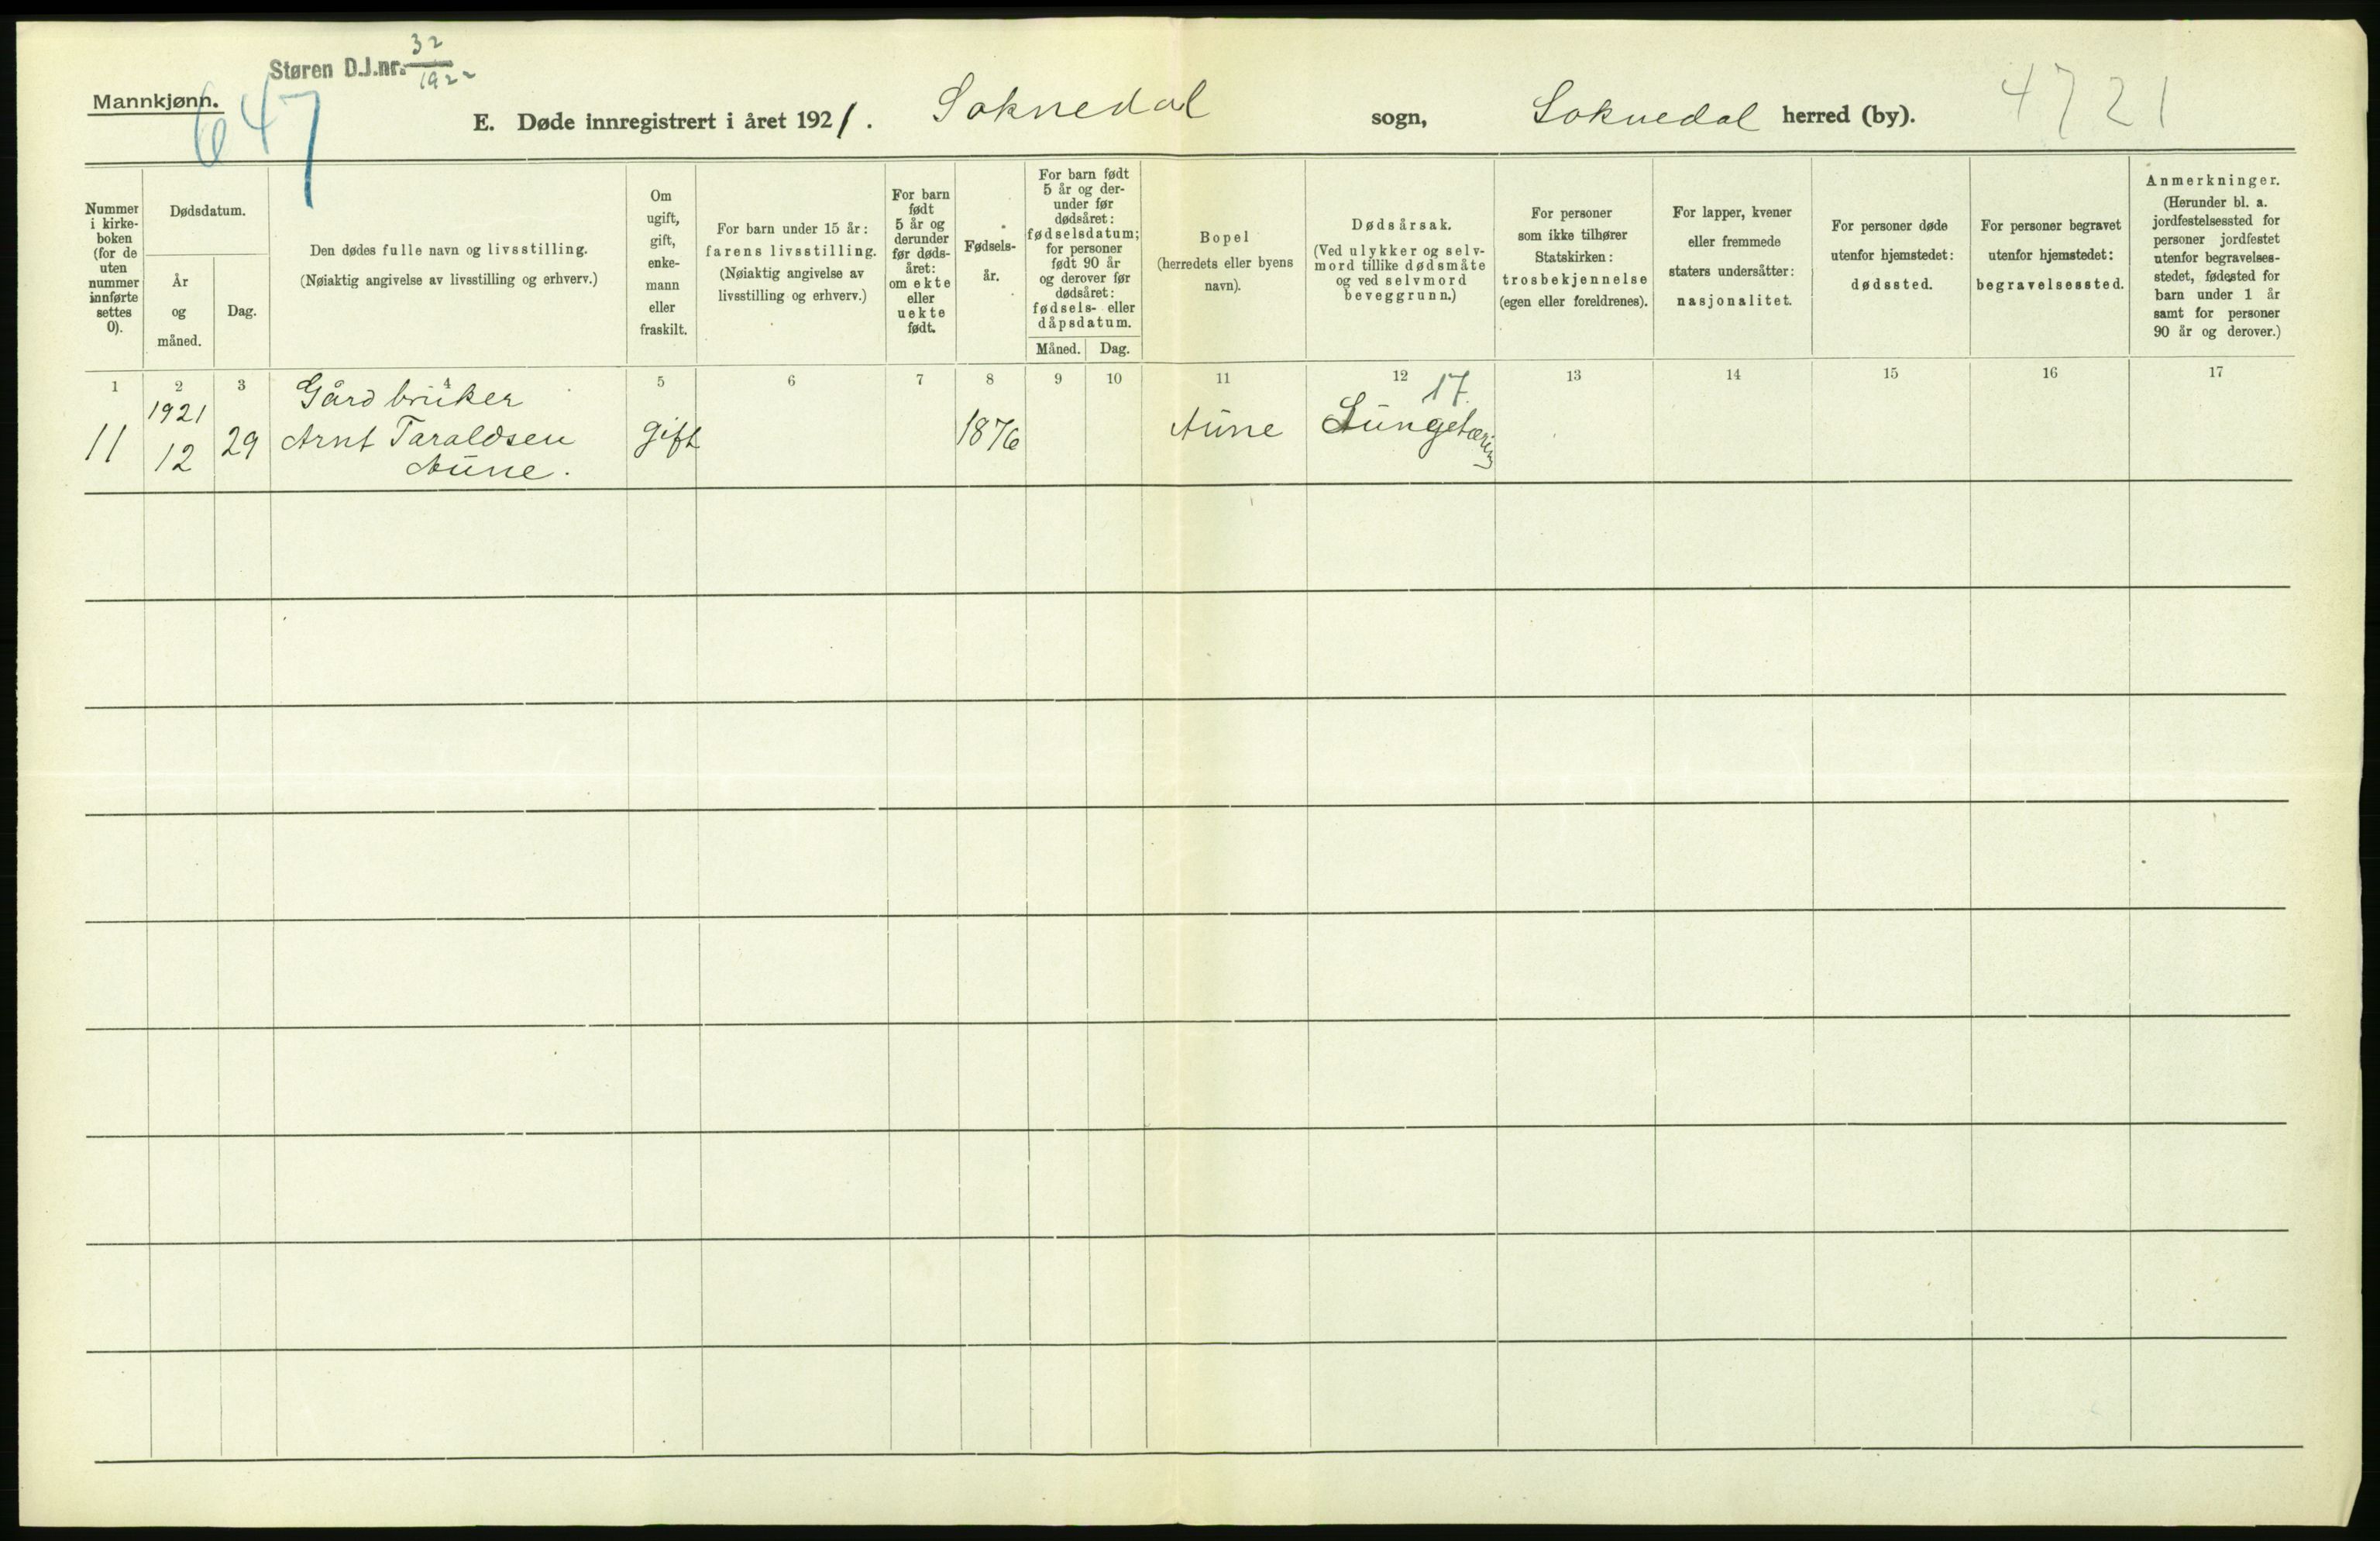 Støren D.J.nr. 32
1922
Mannkjønn.
647
E. Døde innregistrert i året 1921. Soknedal sogn, Soknedal herred (by). 4721
Nummer
i kirke-
boken
(for de
uten
nummer
innførte
settes
0).
Dødsdatum.
År
og
måned.
Dag.
Den dødes fulle navn og livsstilling.
(Nøiaktig angivelse av livsstilling og erhverv.)
Om
ugift,
gift,
enke-
mann
eller
fraskilt.
For barn under 15 år:
farens livsstilling.
(Nøiaktig angivelse av
livsstilling og erhverv.)
For barn
født
5 år og
derunder
før døds-
året:
om ekte
eller
uekte
født.
Fødsels-
år.
For barn født
5 år og der-
under før
dødsåret:
fødselsdatum;
for personer
født 90 år
og derover før
dødsåret:
fødsels- eller
dåpsdatum.
Måned. Dag.
Bopel
(herredets eller byens
navn).
Dødsårsak.
(Ved ulykker og selv-
mord tillike dødsmåte
og ved selvmord
beveggrunn.)
For personer
som ikke tilhører
Statskirken:
trosbekjennelse
(egen eller foreldrenes).
For lapper, kvener
eller fremmede
staters undersåtter:
nasjonalitet.
For personer døde
utenfor hjemstedet:
dødssted.
For personer begravet
utenfor hjemstedet:
begravelsessted.
Anmerkninger.
(Herunder bl. a.
jordfestelsessted for
personer jordfestet
utenfor begravelses-
stedet, fødested for
barn under 1 år
samt for personer
90 år og derover.)
1 2 3 4 5 6 7 8 9 10 11 12 13 14 15 16 17
1921 Gårdbruker 17.
11 12 29 Arnt Taraldsen gift 1876 Aune Lungetæring
Aune.